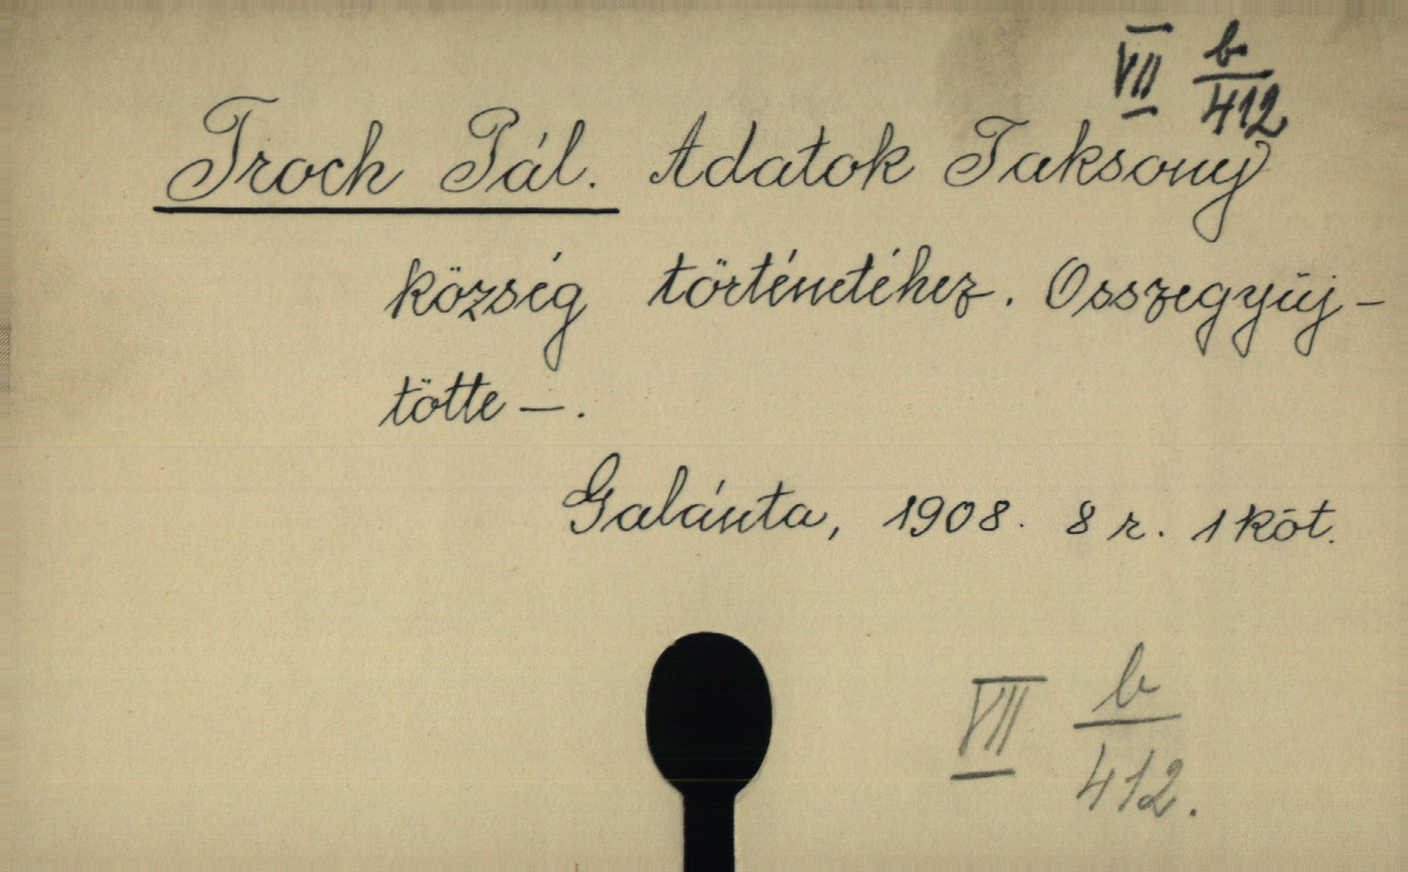 VII b/412
Troch Pál. Adatok Taksony
község történetéhez. Osszegyüj-
tötte —.
Galánta, 1908. 8 r. 1 köt.
VII b/412.